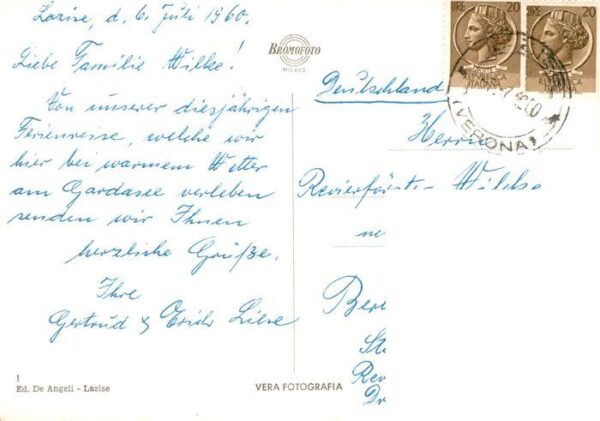 Lazise, d. 6. Juli 1960.
Liebe Familie Wilke!
Von unserer diesjährigen
Ferienreise, welche wir
hier bei warmem Wetter
am Gardasee verleben
senden wir Ihnen
herzliche Grüße.
Ihre
Gertrud & Erich
1
Ed. De Angeli - Lazise
BROMOFOTO
MILANO
VERA FOTOGRAFIA
LIRE 20
20
REPUBBLICA
ITALIANA
(VERONA)
Deutschland
Herrn
Revierförst- Wilke